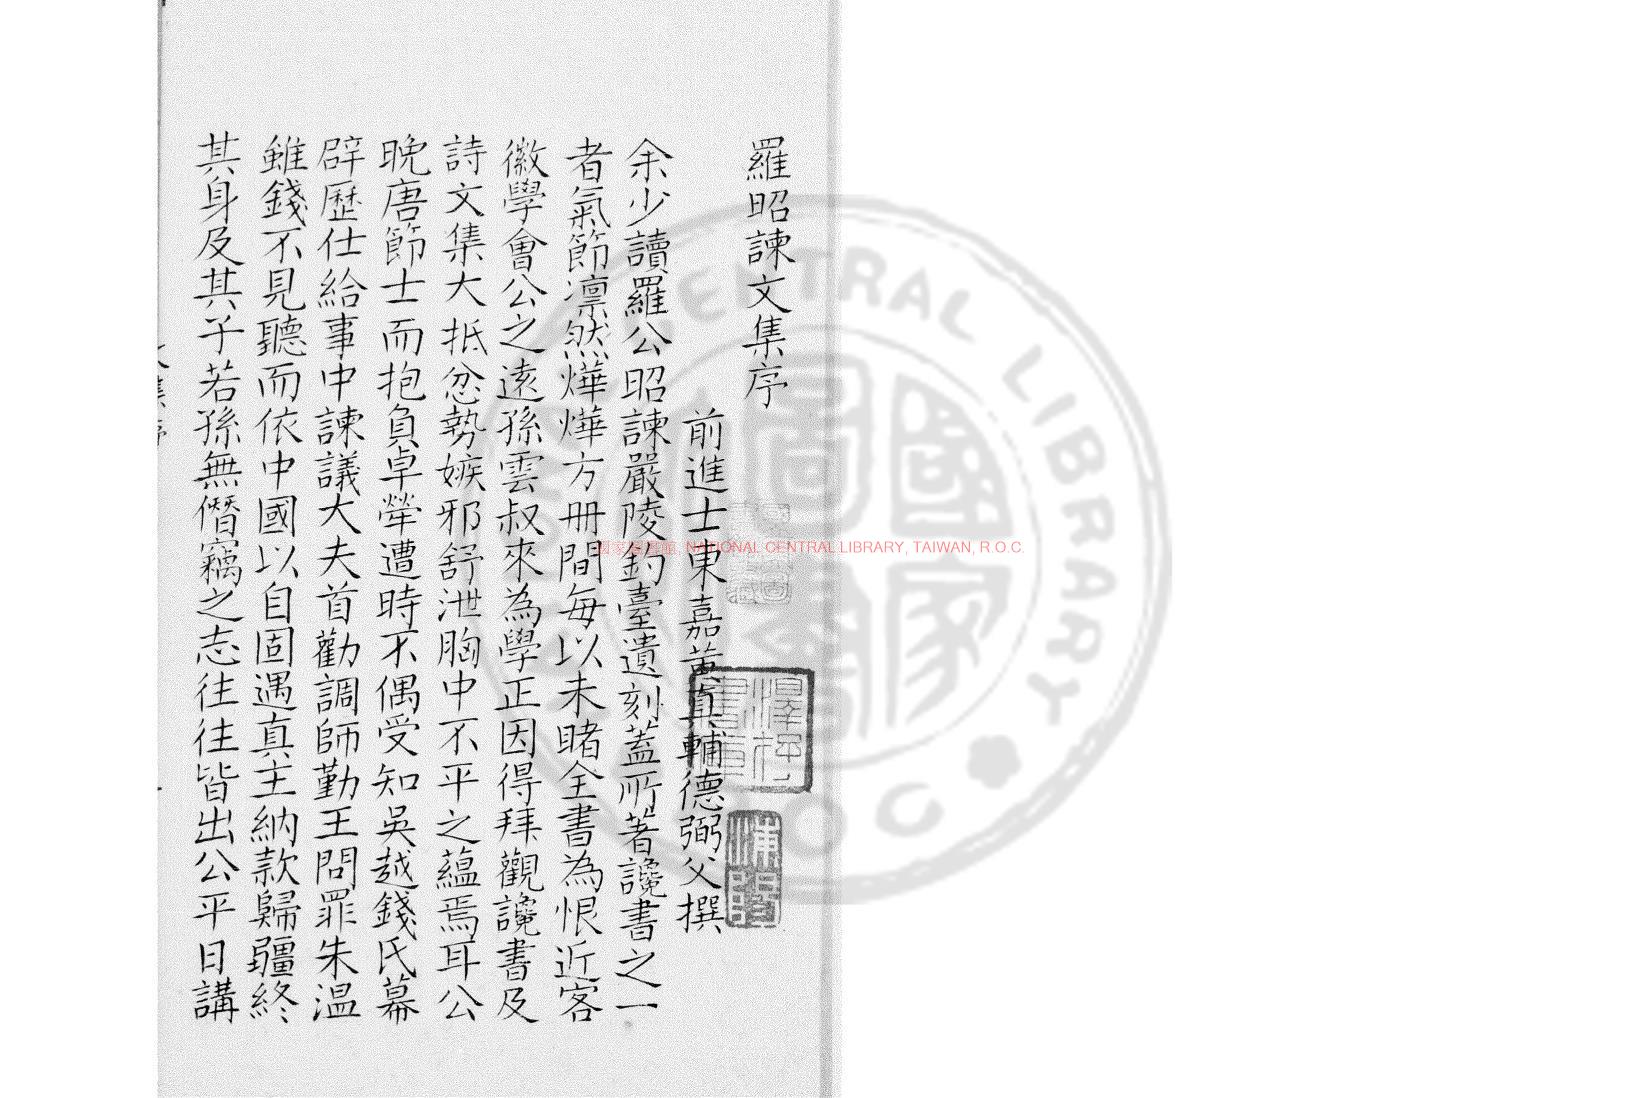 羅昭諫文集序
前進士東嘉黃真輔德弼父撰
余少讀羅公昭諫嚴陵釣臺遺刻蓋所著讒書之一
者氣節凛然燁燁方冊間每以未睹全書為恨近客
徽學會公之遠孫雲叔來為學正因得拜觀讒書及
詩文集大抵忿勢嫉邪舒泄胸中不平之蘊焉耳公
晚唐節士而抱負卓犖遭時不偶受知吳越錢氏幕
辟歷仕給事中諫議大夫首勸調師勤王問罪朱温
雖錢不見聽而依中國以自固遇真主納款歸疆終
其身及其子若孫無僭竊之志往往皆出公平日講
國家圖書館, NATIONAL CENTRAL LIBRARY, TAIWAN, R.O.C.
CENTRAL LIBRARY